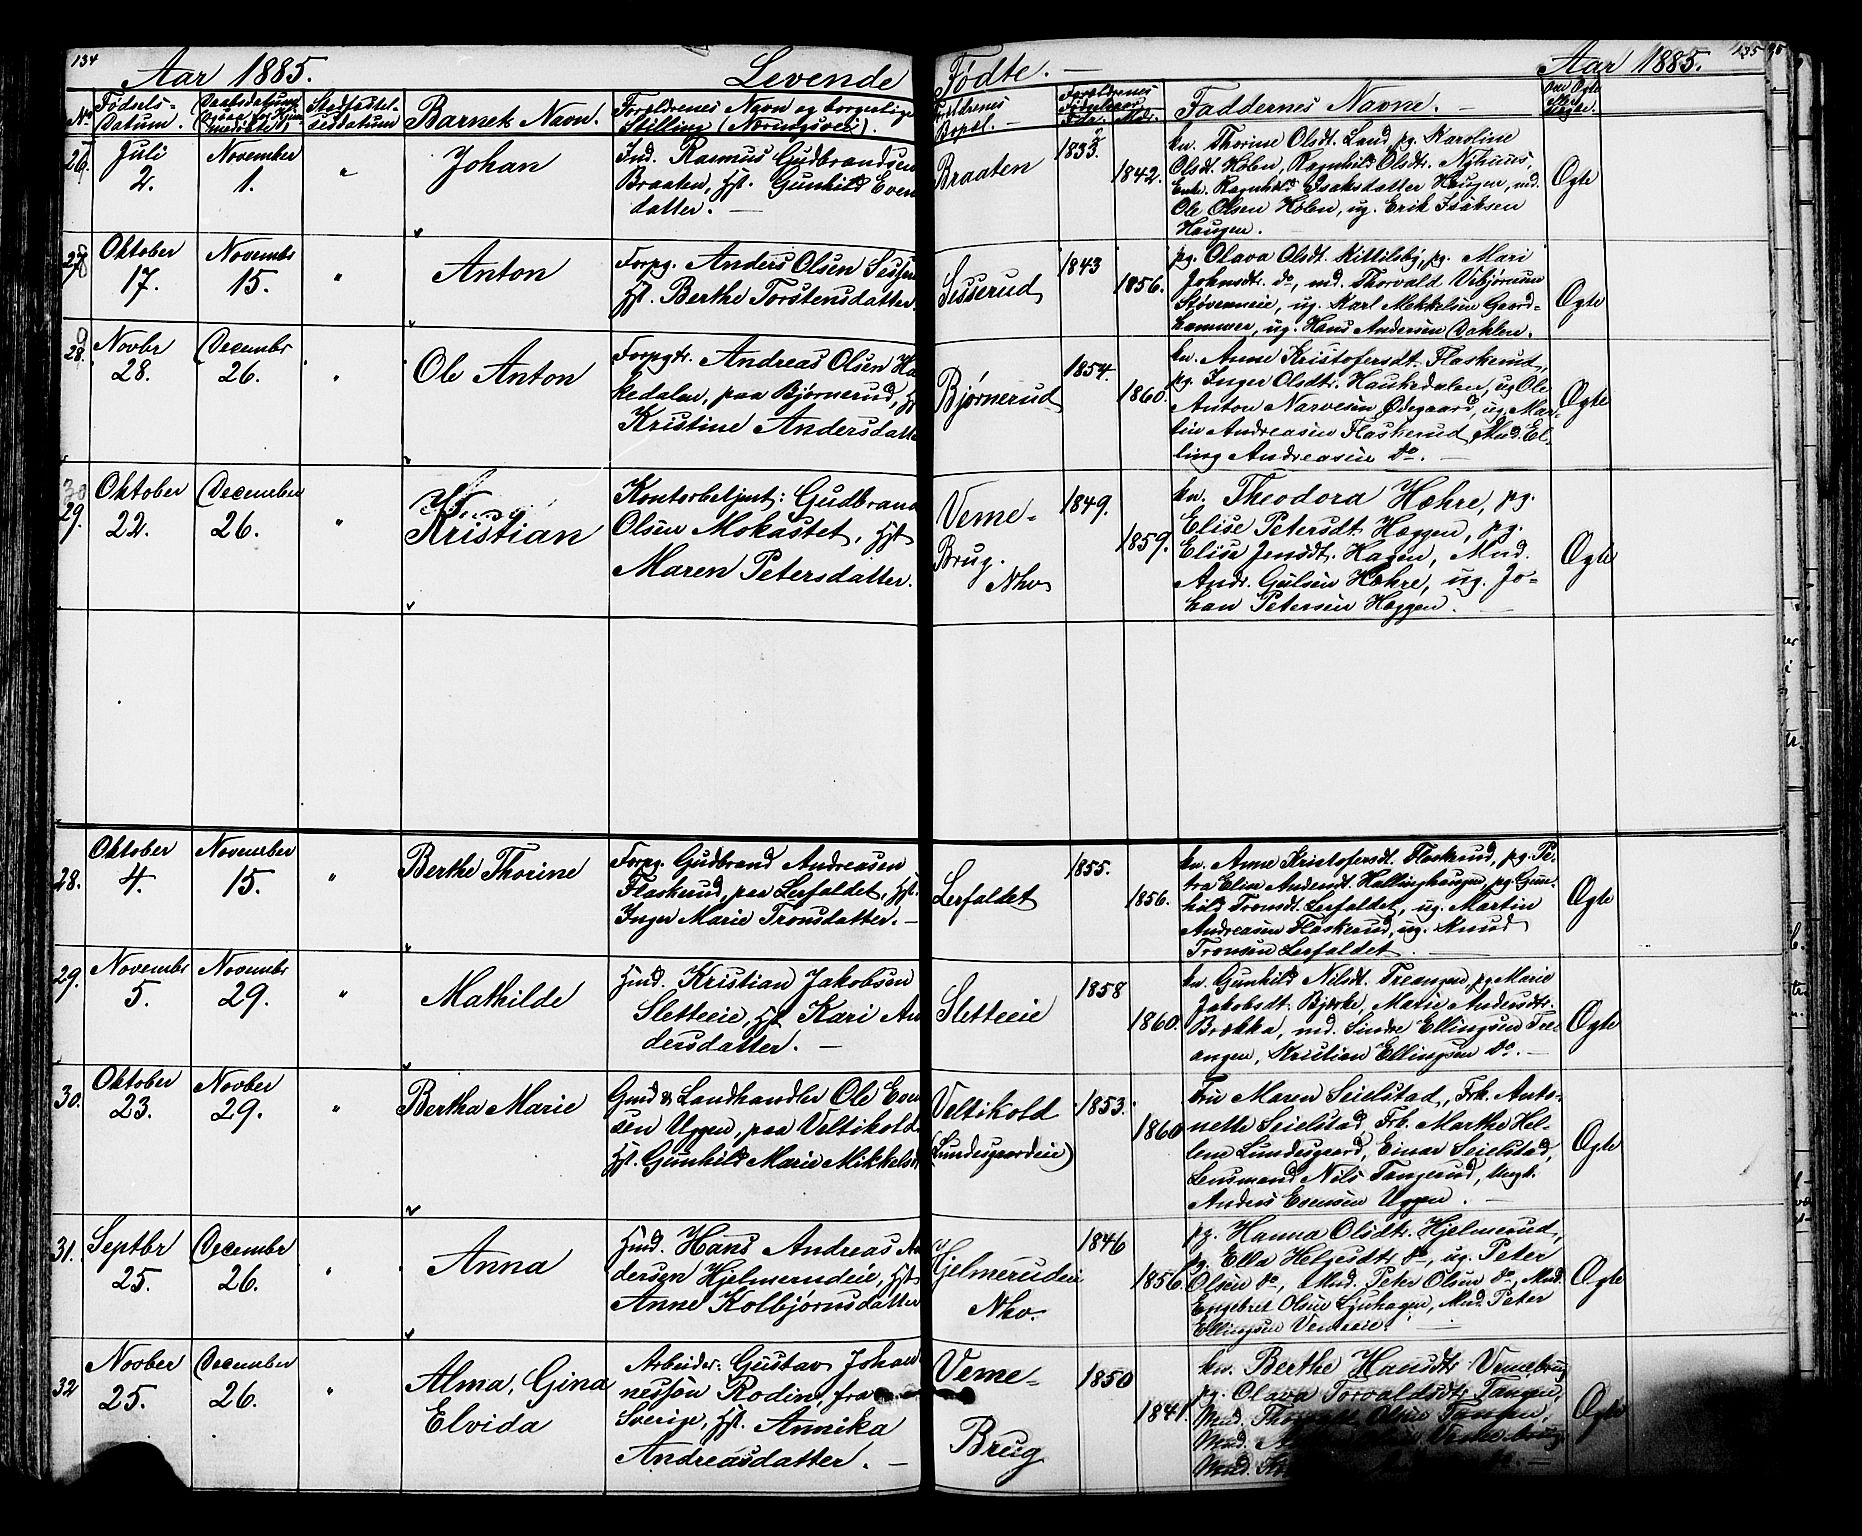 134
Aar 1885.
Levende
Fødte.
Aar 1885.
135
No
Fødsels-
Datum.
Daabsdatum
Stadfæstel-
sesdatum
Barnets Navn.
Forældrenes Navn og borgerlige
Stilling (Næringsvei).
Forældrenes
Bopæl.
Forældrenes
Fødselsaar
Fdr. Mdr.
Faddernes Navne.
26.
Juli
2.
November
1.
"
Johan
Ind. Rasmus Gudbrandsen
Braaten, Hst. Gunhild Even
datter.
Braaten
1833.
1842.
kv. Thorine Olsdt. Land, pg. Karoline
Olsdt. Hølen, Ragnhild Olsdtr. Nyhuus,
Enke. Ragnhild Isaksdatter Haugen, md.
Ole Olsen Hølen, ug. Erik Isaksen
Haugen.
Ogte
27.
Oktober
17.
Novembr
15.
"
Anton
Forpg. Anders Olsen
Hst. Berthe Torstensdatter.
Sesserud
1843
1856.
pg. Olava Olsdt. Kittilsby, pg. Mari
Johnsdt. do, md. Thorvald
Støveneie, ug. Karl Mekkelsen Gaard-
hammer, ug. Hans Andersen Dahlen.
Ogte
28.
Novbr
28.
Decembr
26.
"
Ole Anton
Forpgtr. Andreas Olsen Ha
kedalen, paa Bjørnerud, Hst
Kristine Andersdatte
Bjørnerud
1854.
1860.
kv. Anne Kristofersdt. Flaskerud,
pg. Inger Olsdtr. Haukedalen, ug Ole
Anton Narvesen Ødegaard, ug. Mar-
tin Andreasen Flaskerud, Md. El-
ling Andreasen do.
Ogte
30
29.
Oktober
22.
December
26.
"
Kristian
Kontorbetjent: Gudbrand
Olsen Mokastet, Hst
Maren Petersdatter.
Veme-
Brug.
Nho
1849.
1859.
kv. Theodora Hæhre, pg.
Elise Petersdt. Hæggen, pg.
Elise Jensdt. Hagen, Md.
Andr. Gulsen Hæhre, ug. Jo-
han Petersen Hæggen.
Ogte
28.
Oktober
4.
November
15.
"
Berthe Thorine
Forpg. Gudbrand Andreasen
Flaskerud, paa Lerfaldet, Hst.
Inger Marie Tronsdatter.
Lerfaldet
1855.
1856.
kv. Anne Kristofersdt. Flaskerud, pg. Pe-
tra Elise Andersdt. Hallinghaugen, pg. Gun-
hild Tronsdt. Lerfaldet, ug. Martin
Andreasen Flaskerud, ug. Knud
Tronsen Lerfaldet
Ogte
29.
Novembr
5.
Novembr
29.
"
Mathilde
Hmd. Kristian Jakobsen
Sletteeie, Hst Kari An
dersdatter.
Sletteeie
1858
1860
kv. Gunhild Nilsdt. Treangen pg Marie
Jakobsdt. Bjerke, Marie Andersdtr.
Brøkka, md. Sindre Ellingsen Tre-
angen, Kristian Ellingsen do.
Ogte
30.
Oktober
23.
Novber
29.
"
Bertha Marie
Gmd & Landhandler Ole Even
sen Uggen, paa Veltikold
Hst. Gunhild Marie Mikkelsd
Veltikold
(Lundesgaardeie)
1853.
1860
Fru Maren Seielstad, Frk. Anto-
nette Seielstad, Frk. Marthe Hel-
lene Lundesgaard, Einar Seielstad,
Lensmand Nils Tangerud, Ungk.
Anders Evensen Uggen.
Ogte
31.
Septbr
25.
Decembr
26.
"
Anna
Hmd. Hans Andreas An
dersen Hjelmerudeie, Hst
Anne Kolbjørnsdatter
Hjelmerudeie
Nho.
1846
1856
pg. Hanna Olsdtr. Hjelmerud,
pg. Ella Helgesdtr. do, ug. Peter
Olsen do, Md. Peter Olsen do, Md.
Engebret Olsen Ljuhagen, Md. Peter
Ellingsen Vemeeie.
Ogte
32
Novber
25.
December
26.
"
Alma, Gina
Elvida
Arbeider. Gustav Johan
nesson Rodin, fra
Sverige, Hst. Annika
Andreasdatter.
Veme-
Brug
1850
1841.
kv. Berthe Hansdtr Vemebrug
pg. Olava Torvaldsdtr. Tangen,
Md. Olsen Tangen,
Md.
Md.
Ogte